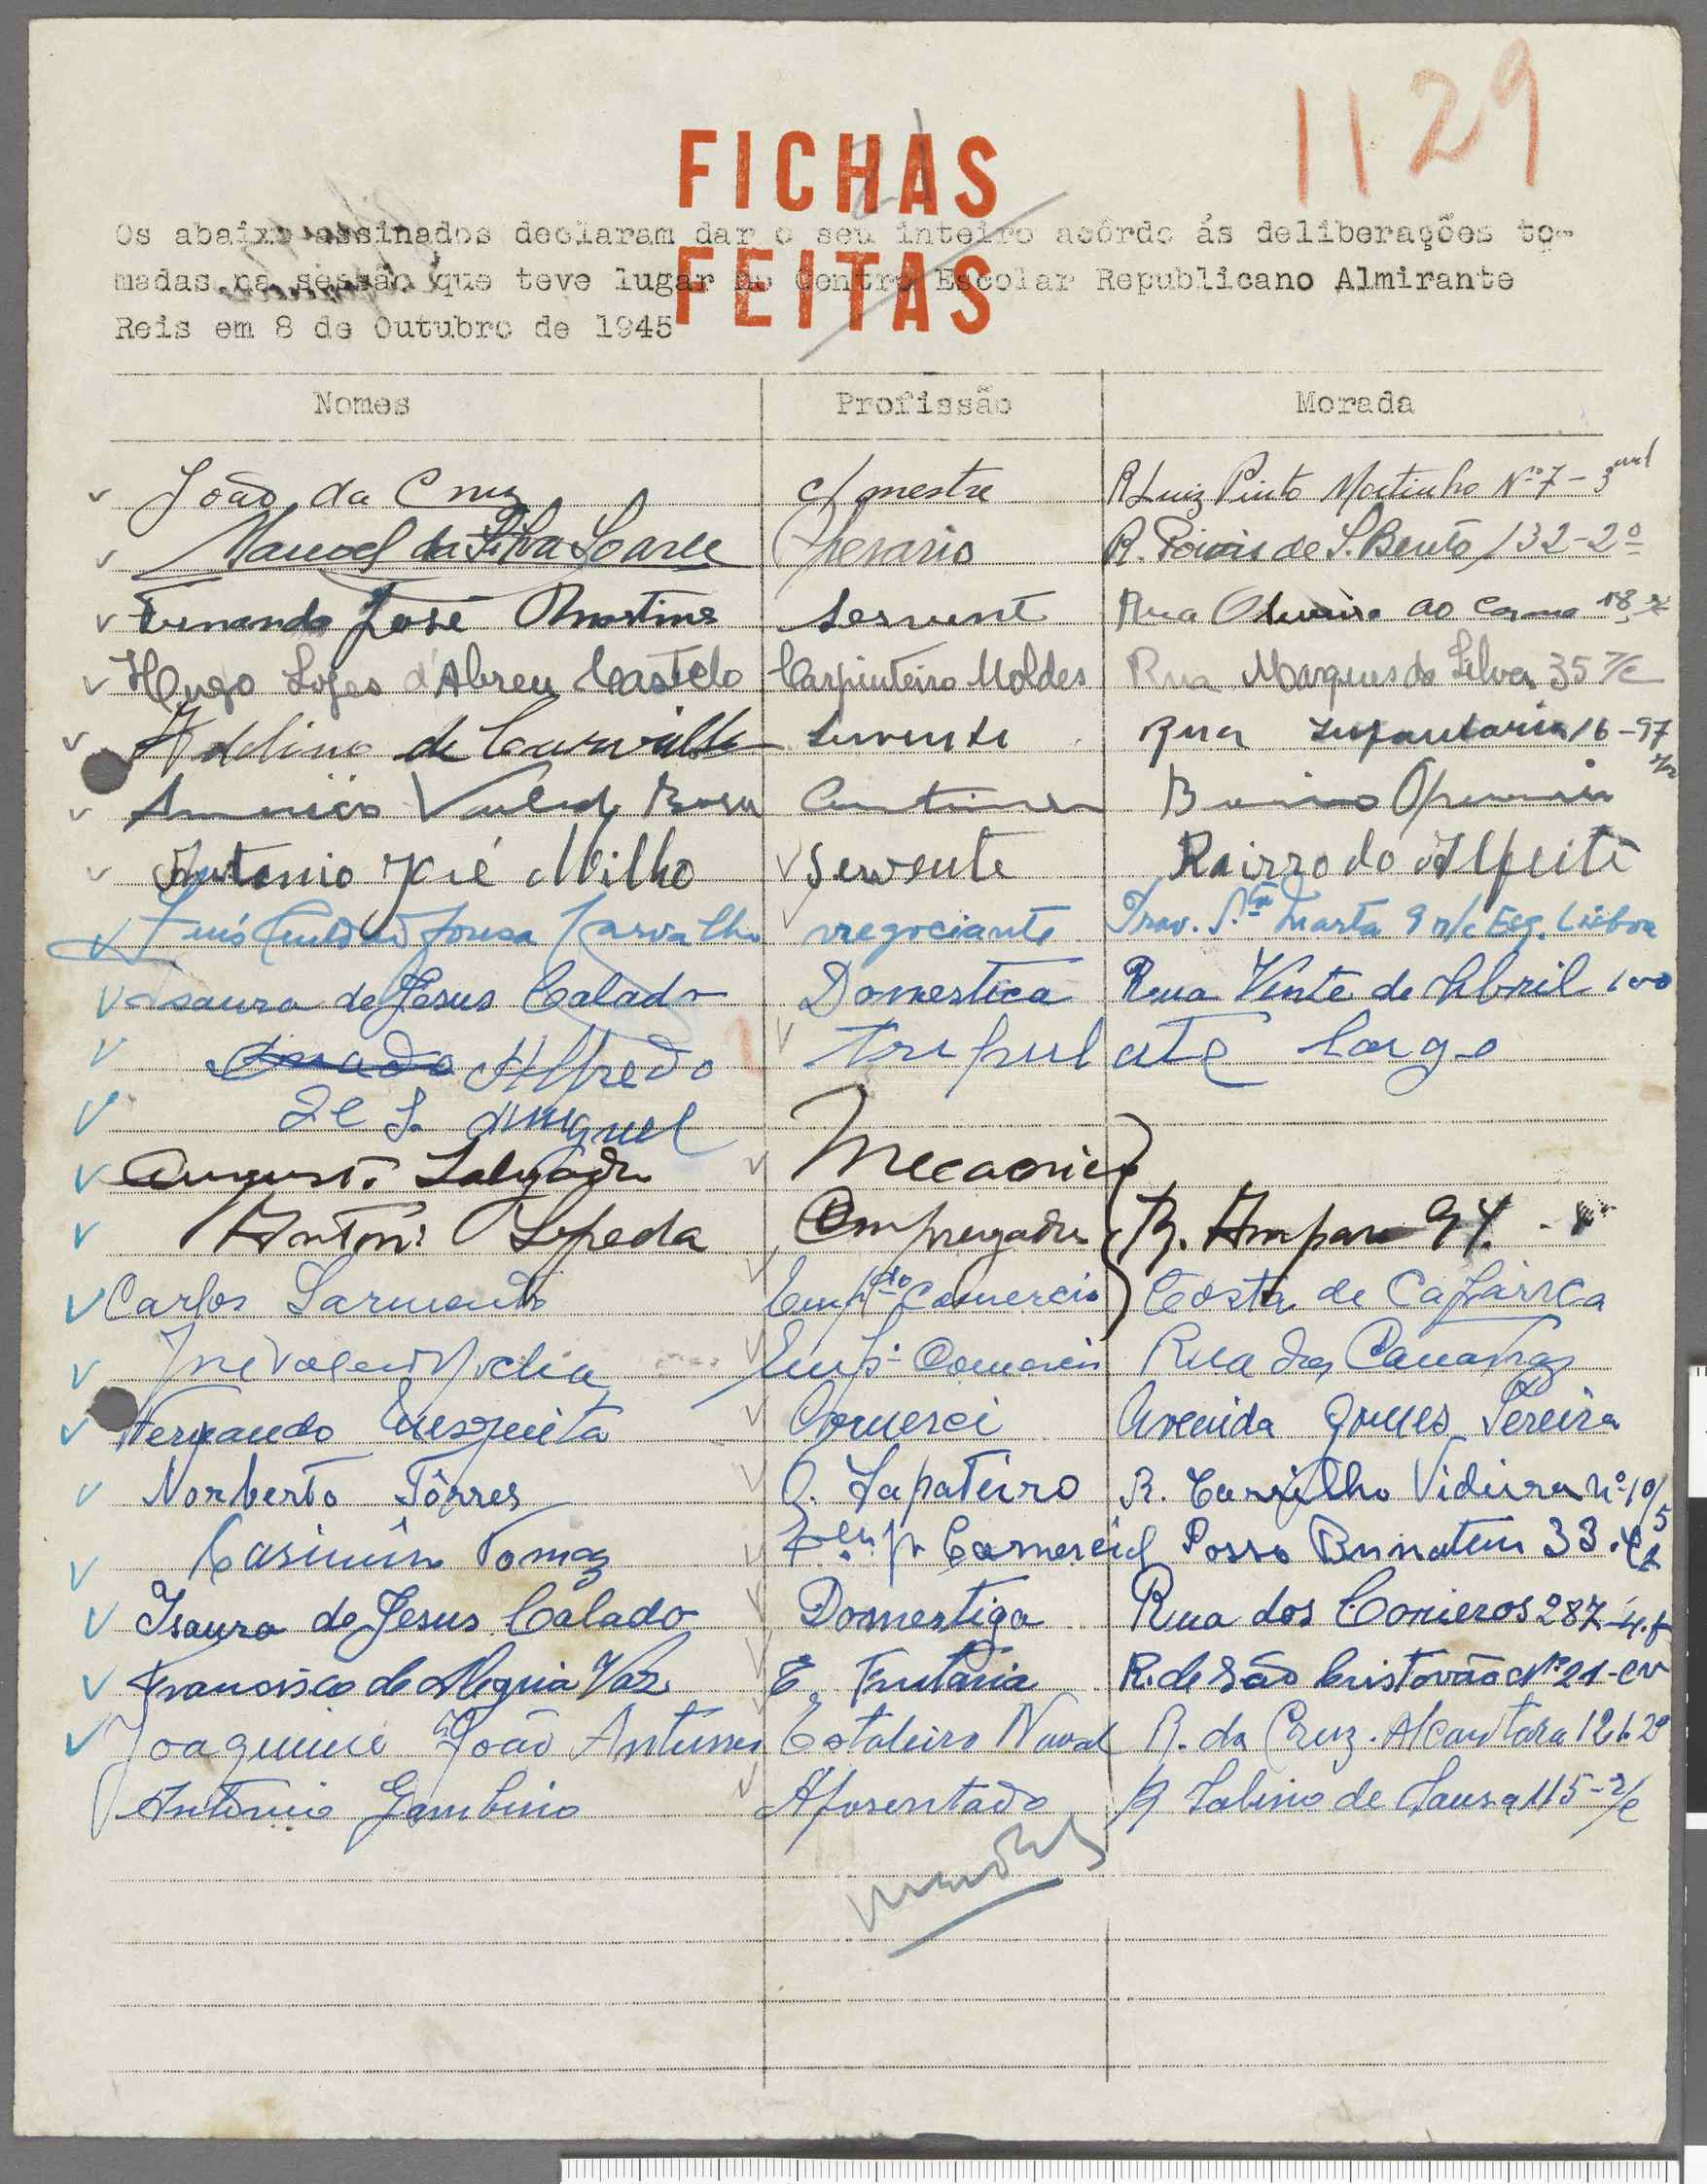 1129
FICHAS
FEITAS
Os abaixo assinados declaram dar o seu inteiro acôrdo ás deliberações to-
madas na sessão que teve lugar no Centro Escolar Republicano Almirante
Reis em 8 de Outubro de 1945
Nomes Profissão Morada
João da Cruz c/ mestre R Luiz Pinto Moitinho Nº 7 - 3
Manoel da Silva Soares Operario R. Poiais de S. Bento 132-2º
Fernando José Martins Servente Rua Oliveira ao Carmo 18
Hugo Lopes d'Abreu Castelo Carpinteiro Moldes Rua Marques da Silva 35 r/c
Adelino de Carvalho Servente Rua Infantaria 16 - 97
Americo Rosa Bairro Operario
Antonio José Milho Servente Bairro do Alfeite
Luís Sousa Carvalho negociante Trav. S.ta Marta 9 r/c Esq. Lisboa
Isaura de Jesus Calado Domestica Rua Vinte de Abril 100
Alfredo Tripulate Largo
de S. Miguel
Augusto Salgado Mecanico
Antoni Zepeda Empregado R. Amparo 94
Carlos Sarmento Emp.do Comercio Costa de Caparica
Emp. Comercio Rua das Canastras
Fernando Mesquita Comerci Avenida Gomes Pereira
Norberto Tôrres O. Sapateiro R. Carrilho Videira nº 10/5
Casimiro Tomaz Comercial Posso Borratem 33
Isaura de Jesus Calado Domestiga Rua dos Conieros 287-4.
Francisco de Alegria Vaz E. Frutaria R. de São Cristovão Nº 21-cv
Joaquim João Antunes Estaleiro Naval R. da Cruz. Alcantara 126 2º
António Gambino Aposentado R Sabino de Sousa 115-r/c